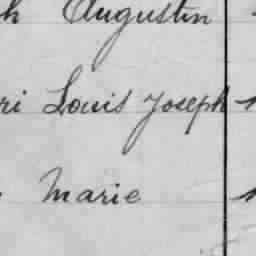 h Augustin
ri Louis Joseph
Marie